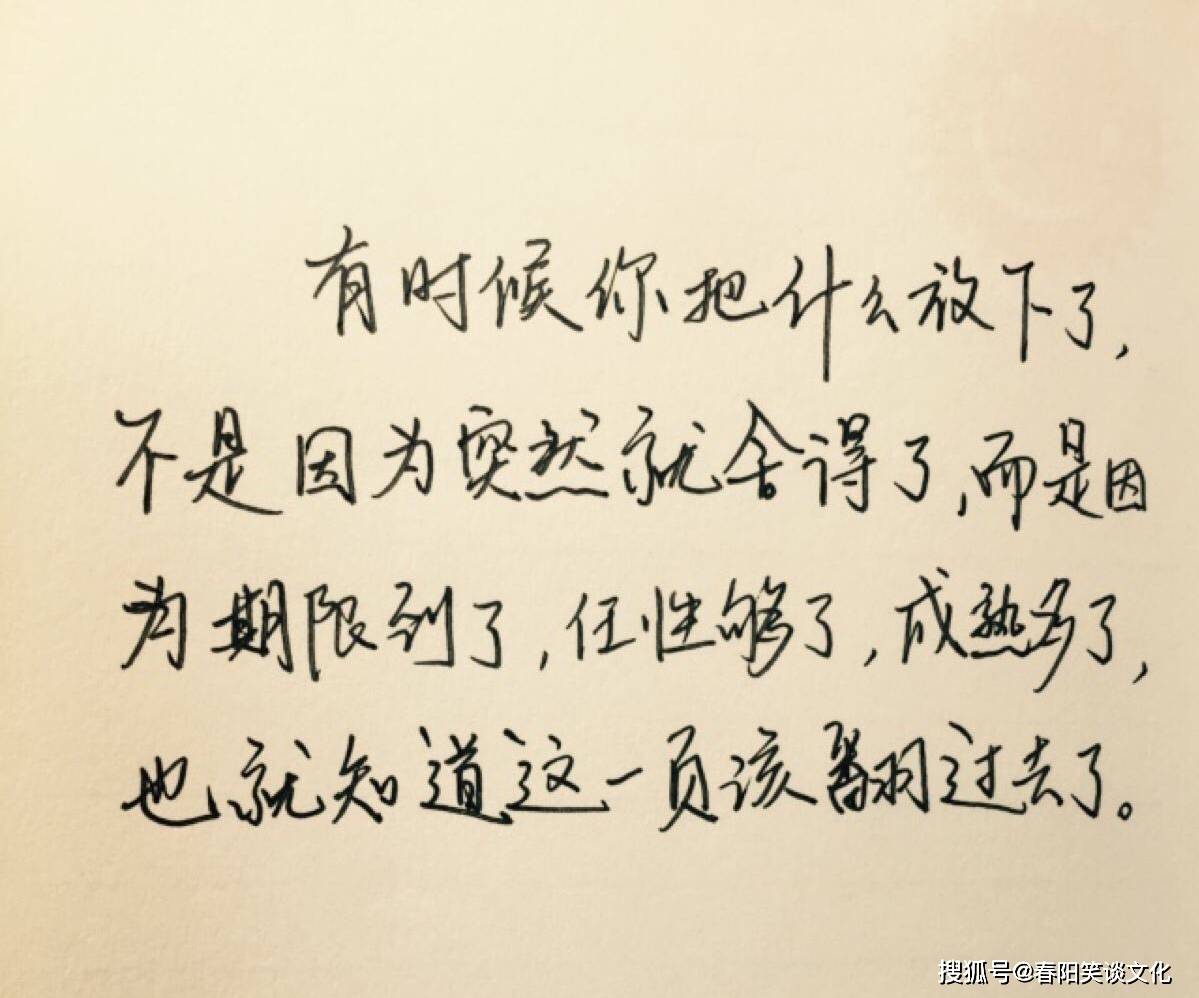 有时候你把什么放下了,
不是因为突然就舍得了,而是因
为期限到了,任性够了,成熟多了,
也就知道这一页该翻过去了。
搜狐号@春阳笑谈文化